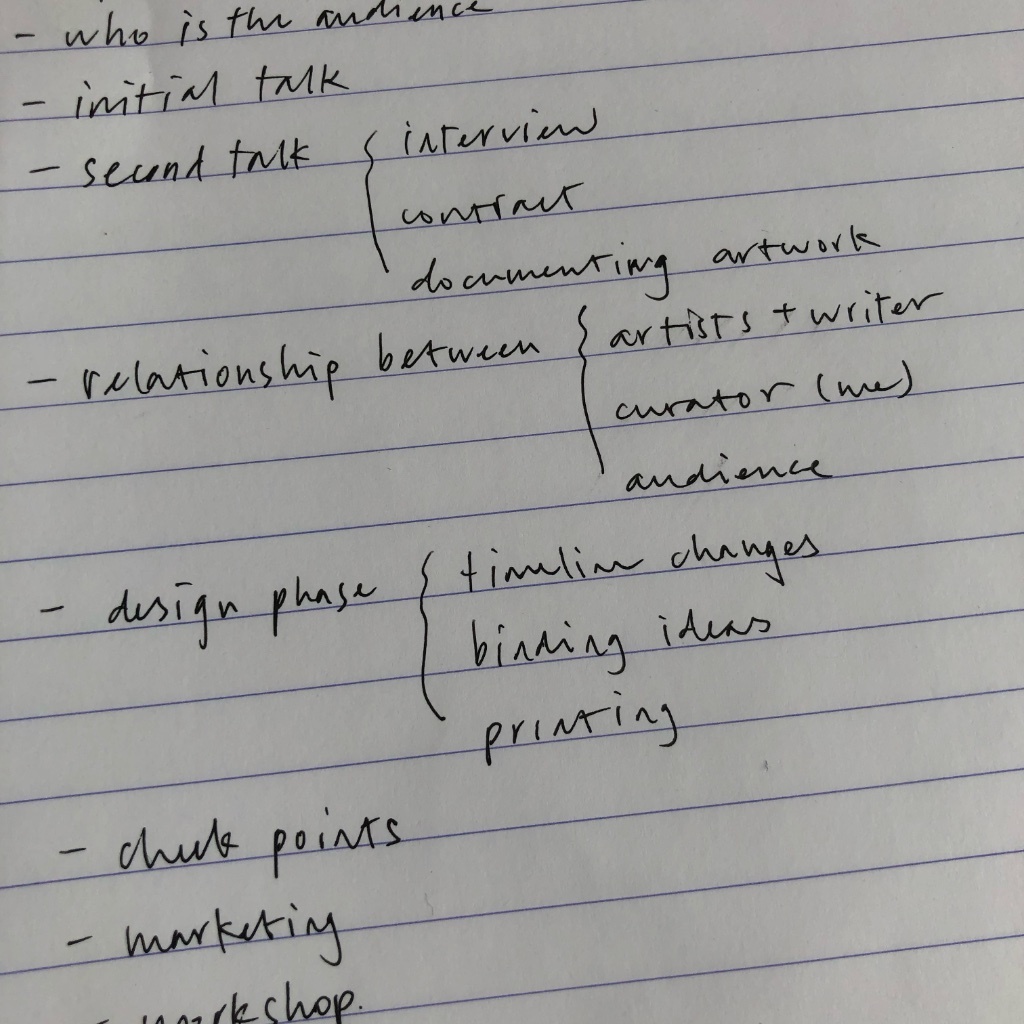 - who is the audience
- initial talk
- second talk { interview
contract
documenting artwork
- relationship between { artists + writer
curator (me)
audience
- design phase { timeline changes
binding ideas
printing
- check points
- marketing
- workshop.